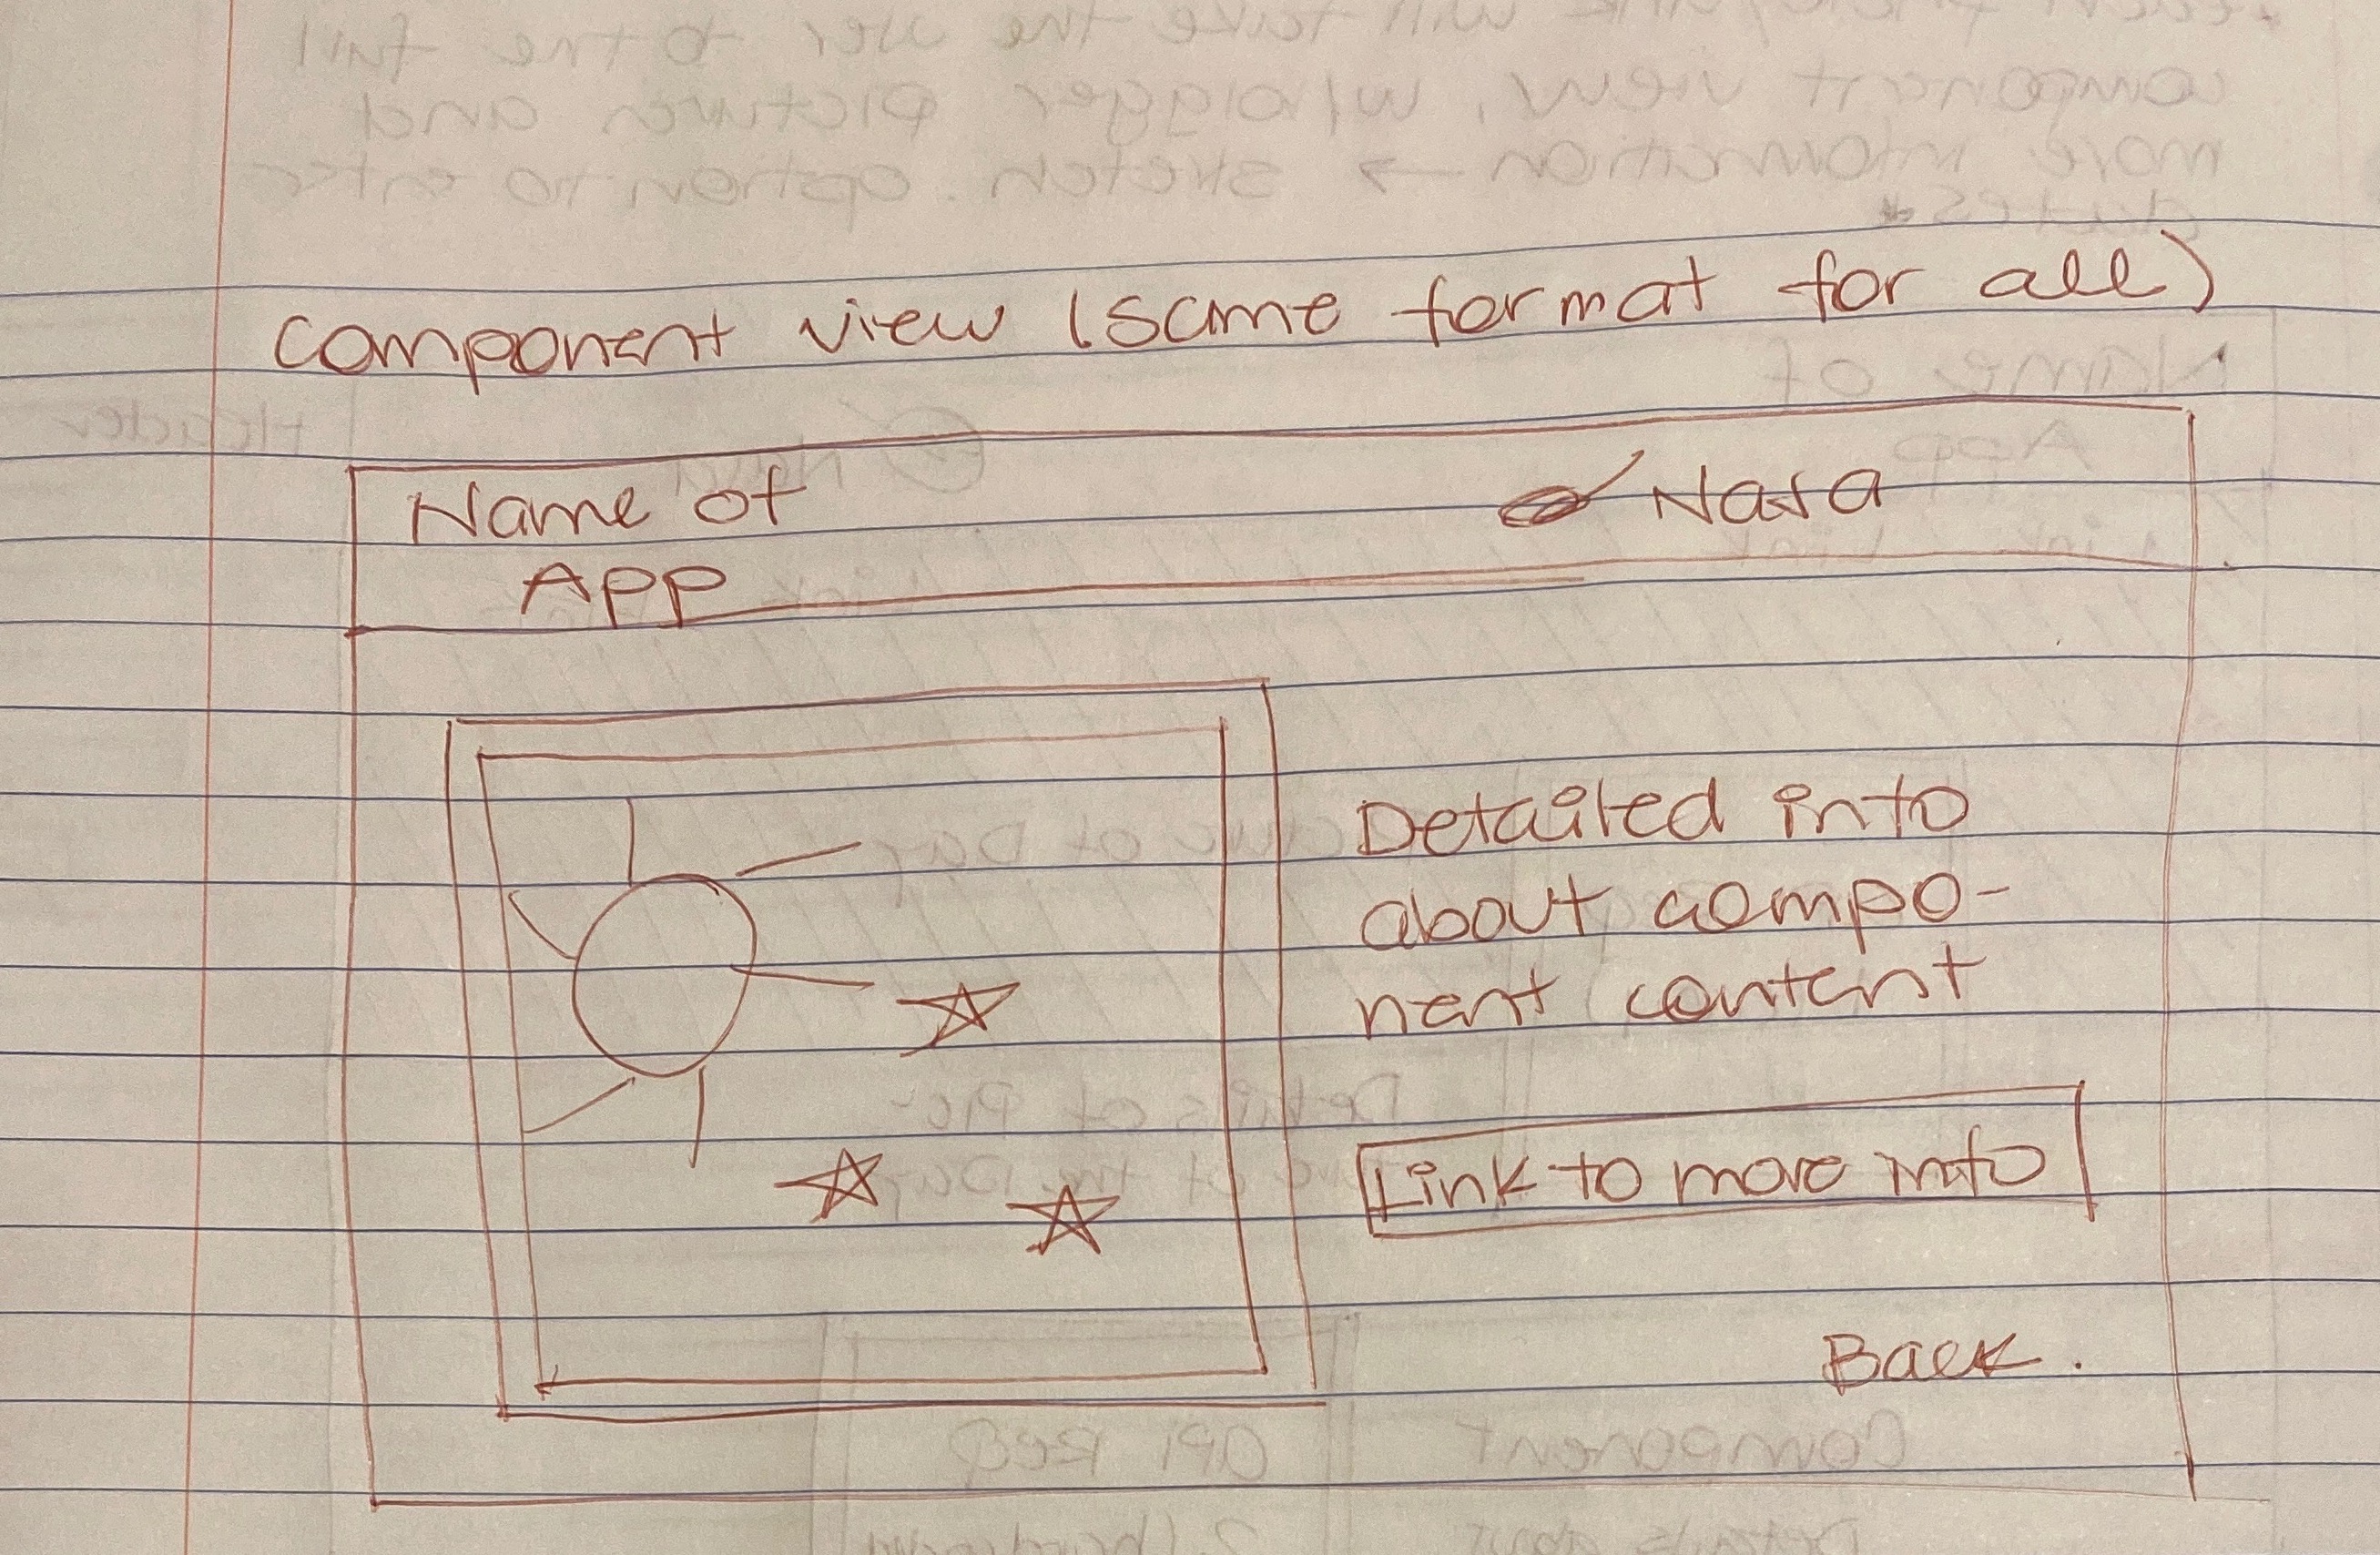 component view (same format for all)
Name of
App
Nasa
Detailed info
about compo-
nent content
Link to more info
Back.